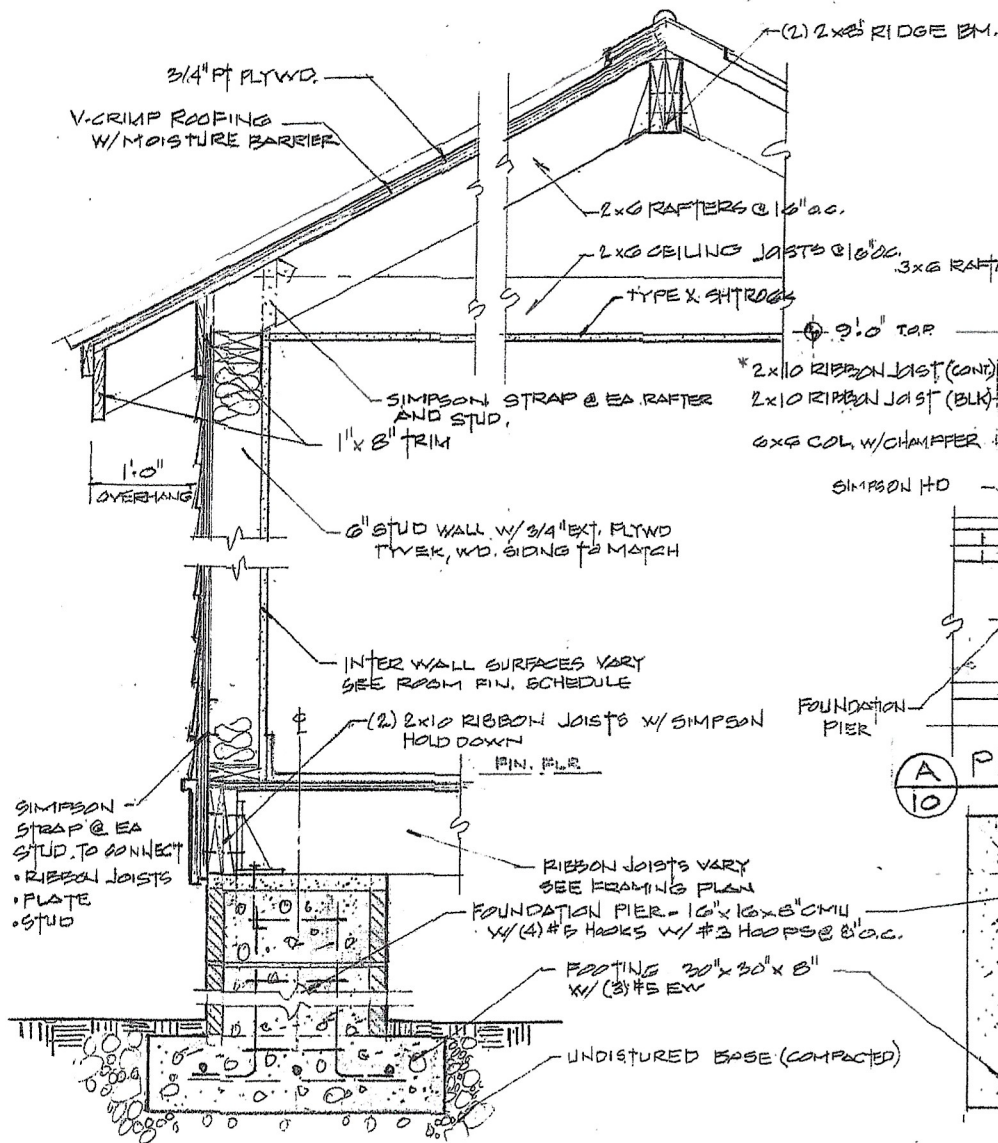 (2) 2x8" RIDGE BM.
3/4" PT PLYWD.
V-CRIMP ROOFING
W/MOISTURE BARRIER
2x6 RAFTERS @ 16" O.C.
2x6 CEILING JOISTS @ 16" O.C.
3x6 RAFT
TYPE X SHTROCK
9'.0" T.O.P.
* 2x10 RIBBON JOIST (CONT)
2x10 RIBBON JOIST (BLK)
6x6 COL. W/CHAMFER
SIMPSON HD
SIMPSON STRAP @ EA. RAFTER
AND STUD.
1" x 8" TRIM
1'.0"
OVERHANG
6" STUD WALL W/ 3/4" EXT. PLYWD
TYVEK, WD. SIDING TO MATCH
INTER WALL SURFACES VARY
SEE ROOM FIN. SCHEDULE
FOUNDATION
PIER
(2) 2x10 RIBBON JOISTS W/ SIMPSON
HOLD DOWN
FIN. FLR.
A
10
P
SIMPSON
STRAP @ EA
STUD. TO CONNECT
• RIBBON JOISTS
• PLATE
• STUD
RIBBON JOISTS VARY
SEE FRAMING PLAN
FOUNDATION PIER - 16" x 16 x 8" CMU
W/(4) #5 HOOKS W/ #3 HOOPS @ 8" O.C.
FOOTING 30" x 30" x 8"
W/ (3) #5 EW
UNDISTURED BASE (COMPACTED)